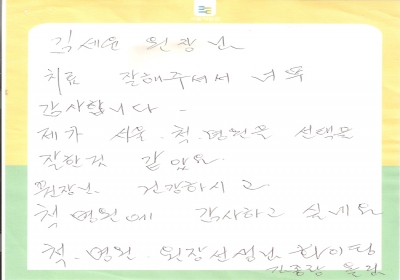 김세윤 원장님
치료 잘해주셔서 너무
감사합니다 -
제가 서울.척.병원을 선택을
잘한것 같았요.
원장님. 건강하시고
척병원에 감사하고 싶네요
척.병원. 원장선생님 화이팅
드림